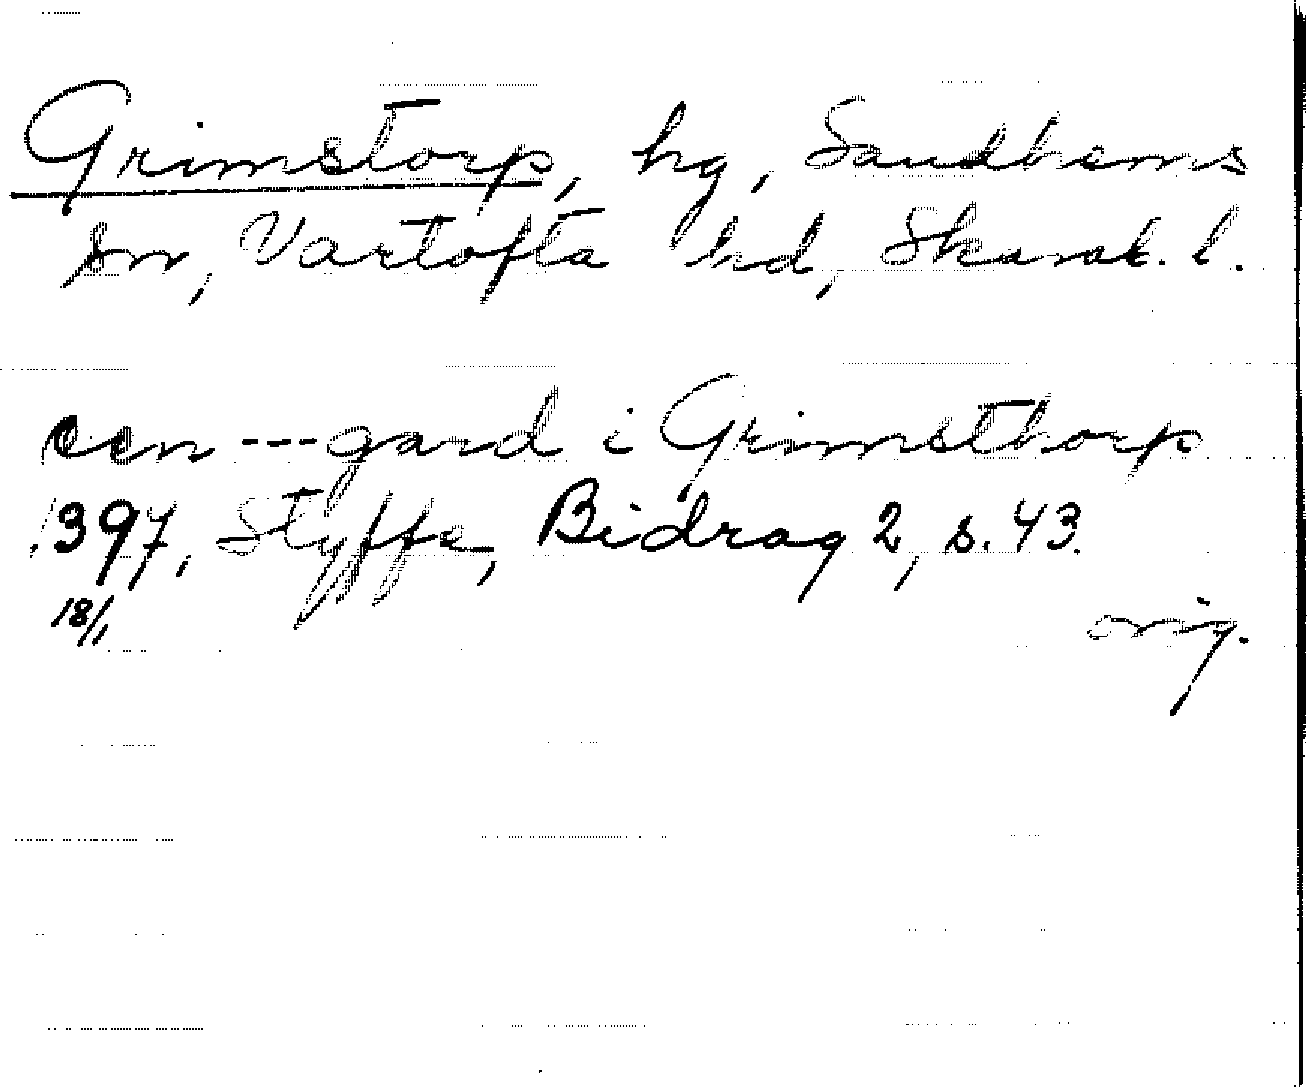 Grimstorp, hg, Sandhems
sn, Vartofta hd, Skarab. l.
een --- gard i Grimsthorp
1397, Styffe, Bidrag 2, s. 43.
18/1
orig.